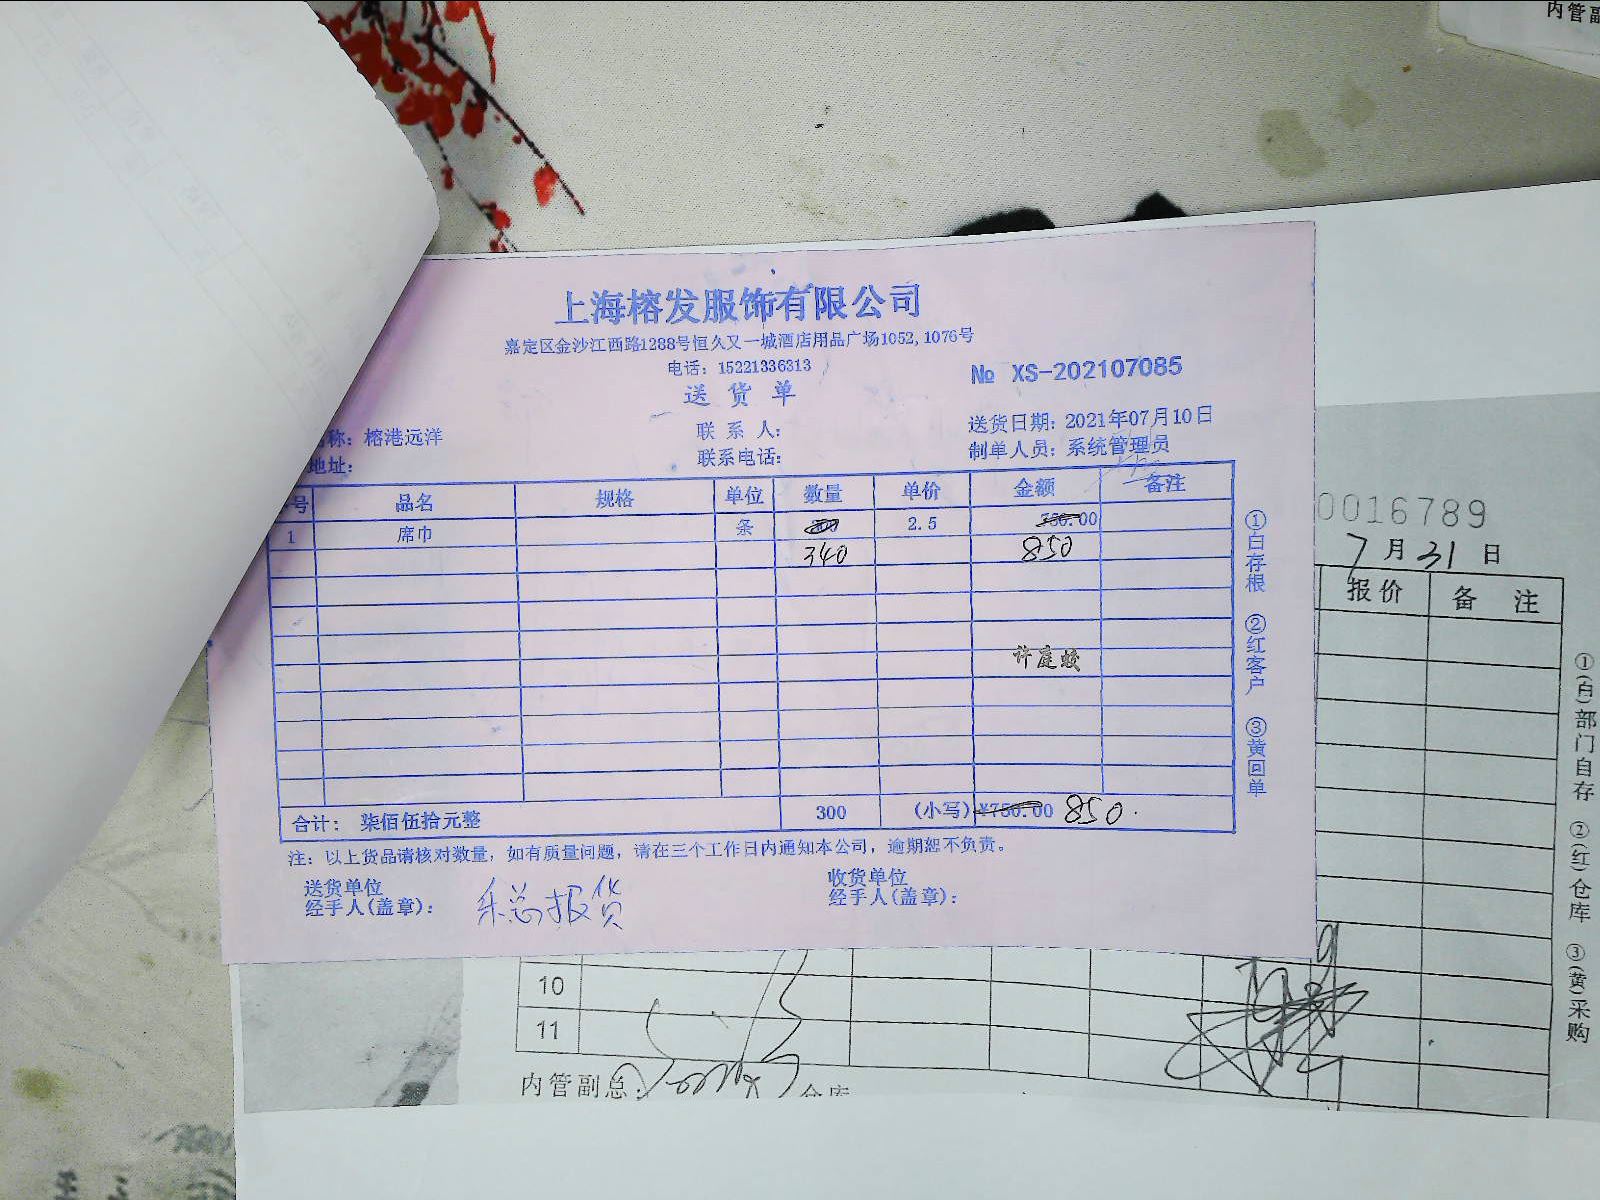 内管副
上海榕发服饰有限公司
嘉定区金沙江西路1288号恒久又一城酒店用品广场1052,1076号
电话：15221336313
№ XS-202107085
送货单
称：榕港远洋
联系人：
送货日期：2021年07月10日
地址：
联系电话：
制单人员：系统管理员
号 品名 规格 单位 数量 单价 金额 备注
1 席巾 条 2.5 750.00
340 850
许庭蛟
合计：柒佰伍拾元整 300 (小写)¥750.00 850.
注：以上货品请核对数量，如有质量问题，请在三个工作日内通知本公司，逾期恕不负责。
送货单位
经手人(盖章)：
收货单位
经手人(盖章)：
①白存根 ②红客户 ③黄回单
0016789
7月31日
报价 备注
①(白)部门自存 ②(红)仓库 ③(黄)采购
10
11
内管副总：
仓库